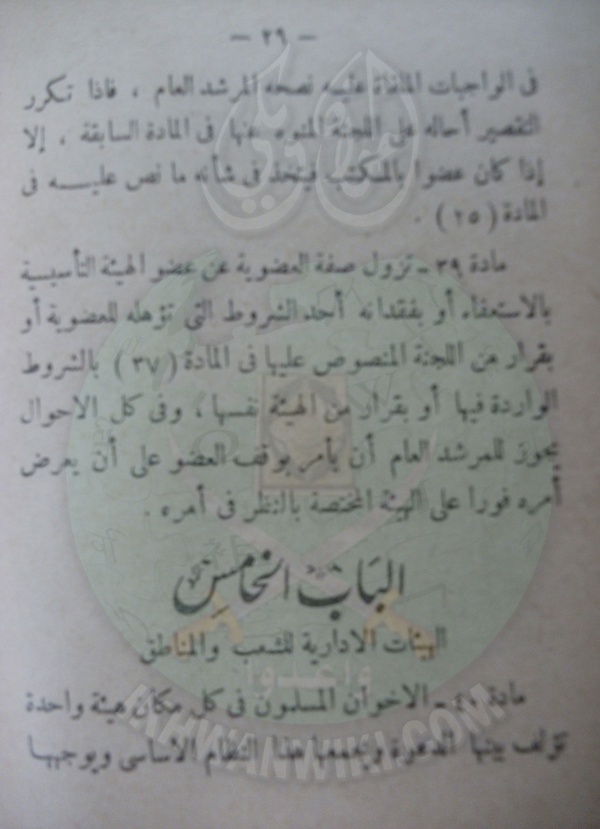 — ٢٩ —
فى الواجبات الملقاة عليه نصحه المرشد العام ، فاذا تكرر
التقصير أحاله على اللجنة المنوه عنها فى المادة السابقة ، إلا
إذا كان عضوا بالمكتب فيتخذ فى شأنه ما نص عليه فى
المادة ( ٢٥ ) .
مادة ٣٩ - تزول صفة العضوية عن عضو الهيئة التأسيسية
بالاستعفاء أو بفقدانه أحد الشروط التى تؤهله للعضوية أو
بقرار من اللجنة المنصوص عليها فى المادة ( ٣٧ ) بالشروط
الواردة فيها أو بقرار من الهيئة نفسها ، وفى كل الاحوال
يجوز للمرشد العام أن يأمر بوقف العضو على أن يعرض
أمره فورا على الهيئة المختصة بالنظر فى أمره .
الباب الخامس
الهيئات الادارية للشعب والمناطق
وأعدوا
مادة ٤٠ - الاخوان المسلمون فى كل مكان هيئة واحدة
تؤلف بينها الدعوة ويجمعها هذا النظام الأساسى ويوجهها
IKHWANWIKI.COM